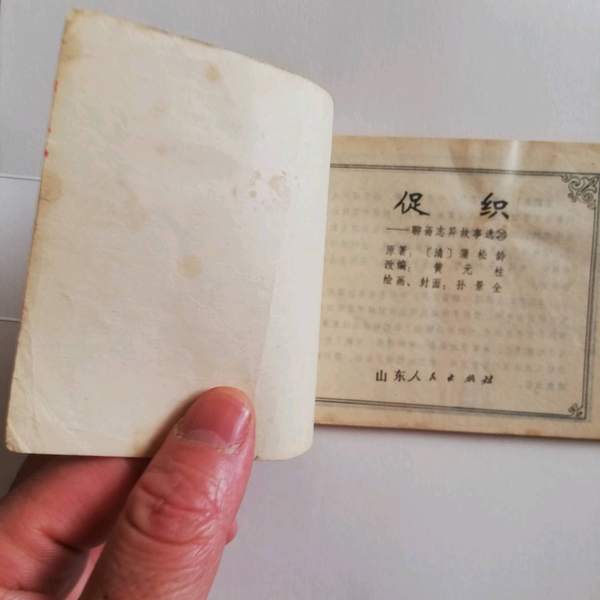 促 织
——聊斋志异故事选㉕
原著：〔清〕蒲松龄
改编：黄元柱
绘画、封面：孙景全
山东人民出版社